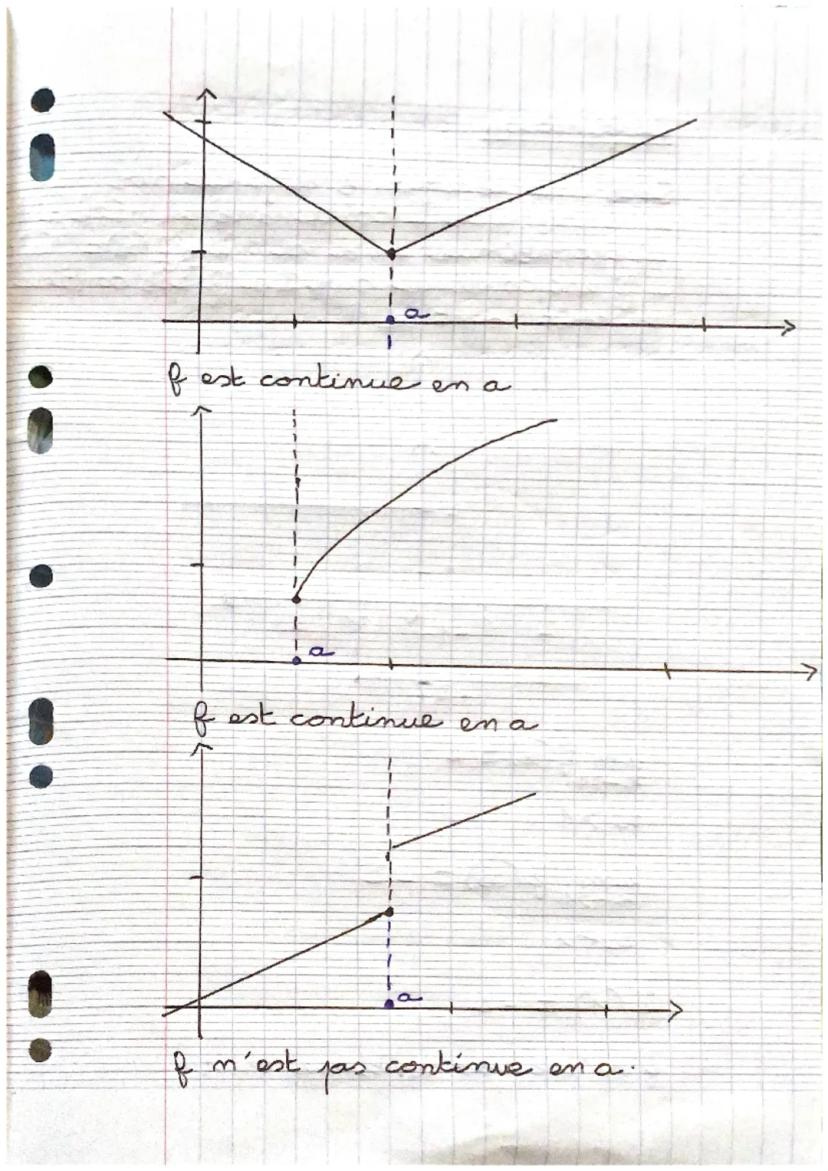 a
f est continue en a
a
f est continue en a
a
f n'est pas continue en a.